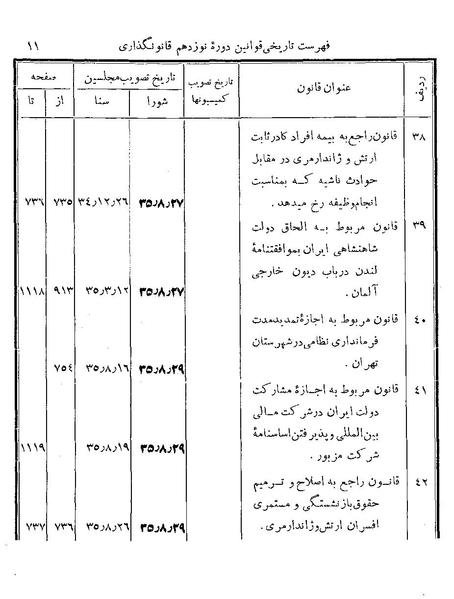 فهرست تاریخی قوانین دورهٔ نوزدهم قانونگذاری
۱۱
ردیف
عنوان قانون
تاریخ تصویب کمیسیونها
تاریخ تصویب مجلسین
شورا
سنا
صفحه
از
تا
۳۸
قانون راجع به بیمه افراد کادر ثابت
ارتش و ژاندارمری در مقابل
حوادث ناشیه کـه بمناسبت
انجام وظیفه رخ میدهد.
۳۵٫۸٫۲۷
۳۴٫۱۲٫۲۶
۷۳۵
۷۳۶
۳۹
قانون مربوط بـه الحاق دولت
شاهنشاهی ایران بموافقتنامهٔ
لندن درباب دیون خارجی
آلمان.
۳۵٫۸٫۲۷
۳۵٫۳٫۱۲
۹۱۳
۱۱۱۸
۴۰
قانون مربوط به اجازهٔ تمدید مدت
فرمانداری نظامی در شهرستان
تهران.
۳۵٫۸٫۲۹
۳۵٫۸٫۱۶
۷۵۴
۴۱
قانون مربوط به اجـازهٔ مشارکت
دولت ایران در شرکت مـالی
بین‌المللی و پذیرفتن اساسنامهٔ
شرکت مزبور.
۳۵٫۸٫۲۹
۳۵٫۸٫۱۹
۱۱۱۹
۴۲
قانـون راجع به اصلاح و تـرمیم
حقوق بازنشستگی و مستمری
افسران ارتش و ژاندارمری.
۳۵٫۸٫۲۹
۳۵٫۸٫۲۶
۷۳۶
۷۳۷